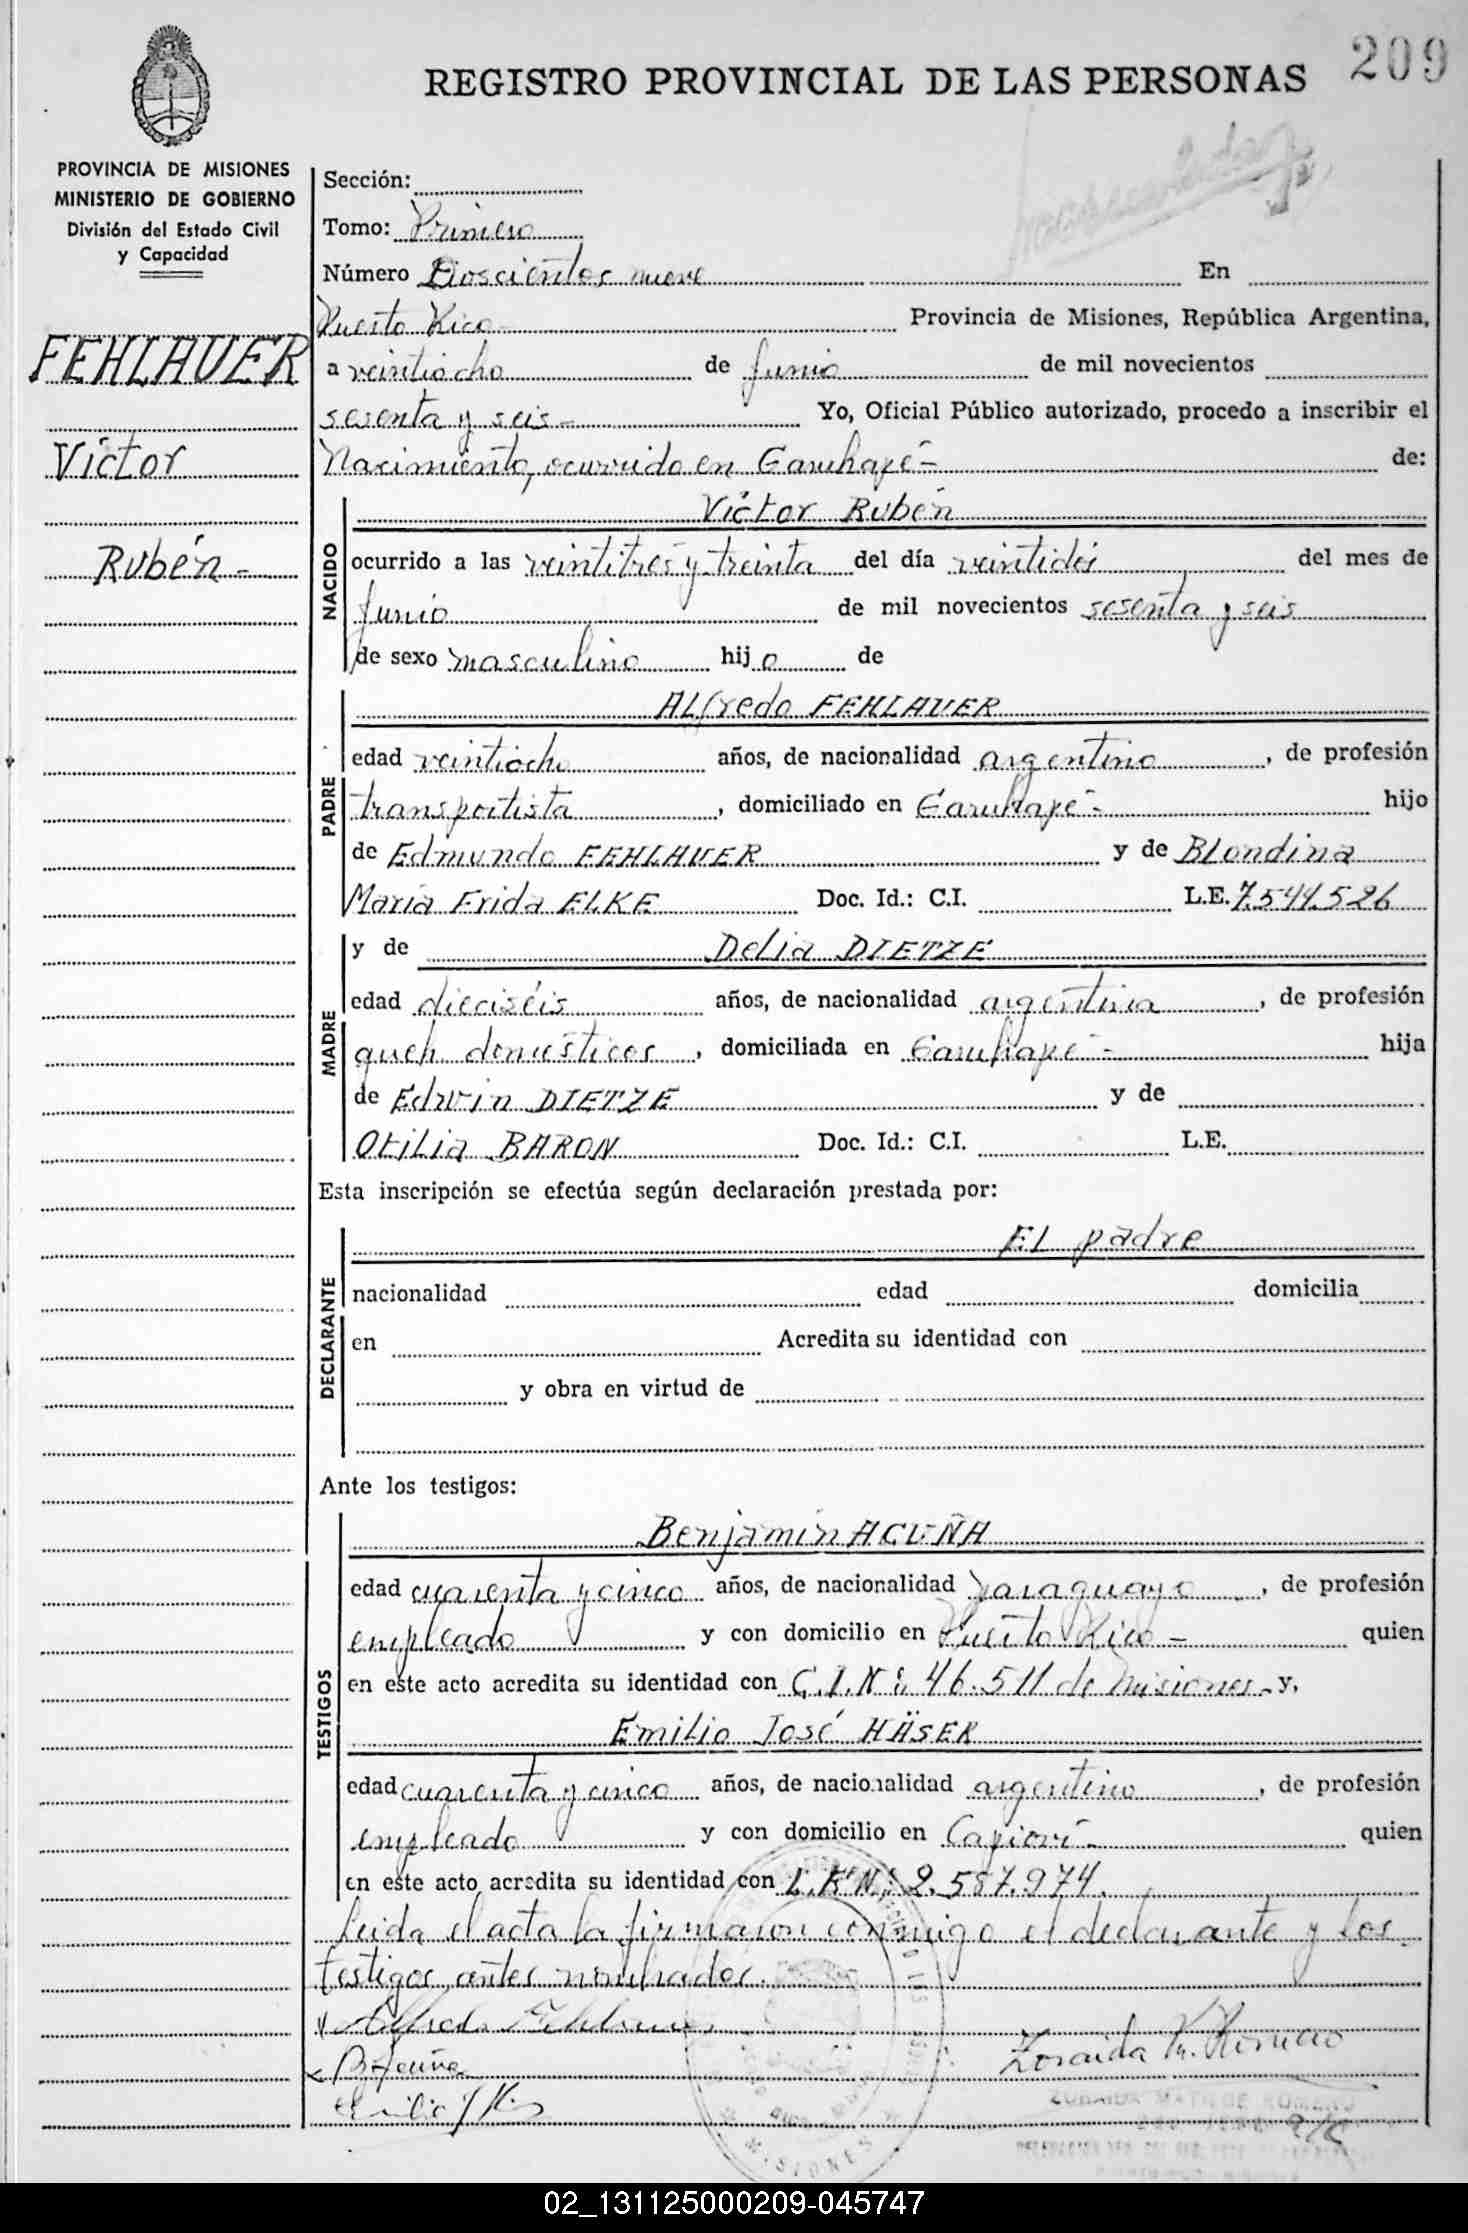 209
REGISTRO PROVINCIAL DE LAS PERSONAS
PROVINCIA DE MISIONES
MINISTERIO DE GOBIERNO
División del Estado Civil
y Capacidad
FEHLAUER
Víctor
Rubén-
Sección:
Tomo: Primero
Número Doscientos nueve En
Puerto Rico- Provincia de Misiones, República Argentina,
a veintiocho de Junio de mil novecientos
sesenta y seis- Yo, Oficial Público autorizado, procedo a inscribir el
Nacimiento, ocurrido en Garuhapé- de:
NACIDO
Víctor Rubén
ocurrido a las veintitrés y treinta del día veintidós del mes de
Junio de mil novecientos sesenta y seis
de sexo masculino hijo de
PADRE
Alfredo FEHLAUER
edad veintiocho años, de nacionalidad argentino, de profesión
transportista, domiciliado en Garuhapé- hijo
de Edmundo FEHLAUER y de Blondina
María Frida ELKE Doc. Id.: C.I. L.E. 7.544.526
MADRE
y de Delia DIETZE
edad dieciséis años, de nacionalidad argentina, de profesión
queh. domésticos, domiciliada en Garuhapé- hija
de Edwin DIETZE y de
Otilia BARON Doc. Id.: C.I. L.E.
Esta inscripción se efectúa según declaración prestada por:
DECLARANTE
El padre
nacionalidad edad domicilia
en Acredita su identidad con
y obra en virtud de
Ante los testigos:
TESTIGOS
Benjamín ACUÑA
edad cuarenta y cinco años, de nacionalidad paraguayo, de profesión
empleado y con domicilio en Puerto Rico- quien
en este acto acredita su identidad con C.I.Nº: 46.511 de Misiones- y,
Emilio José HÄSER
edad cuarenta y cinco años, de nacionalidad argentino, de profesión
empleado y con domicilio en Capioví- quien
en este acto acredita su identidad con L.E.Nº: 2.587.974.
Leida el acta la firmaron conmigo el declarante y los
testigos antes nombrados.
Alfredo Fehlauer
B. Acuña
Zoraida M. Romero
Emilio J
ZORAIDA MATILDE ROMERO
MISIONES
02_131125000209-045747